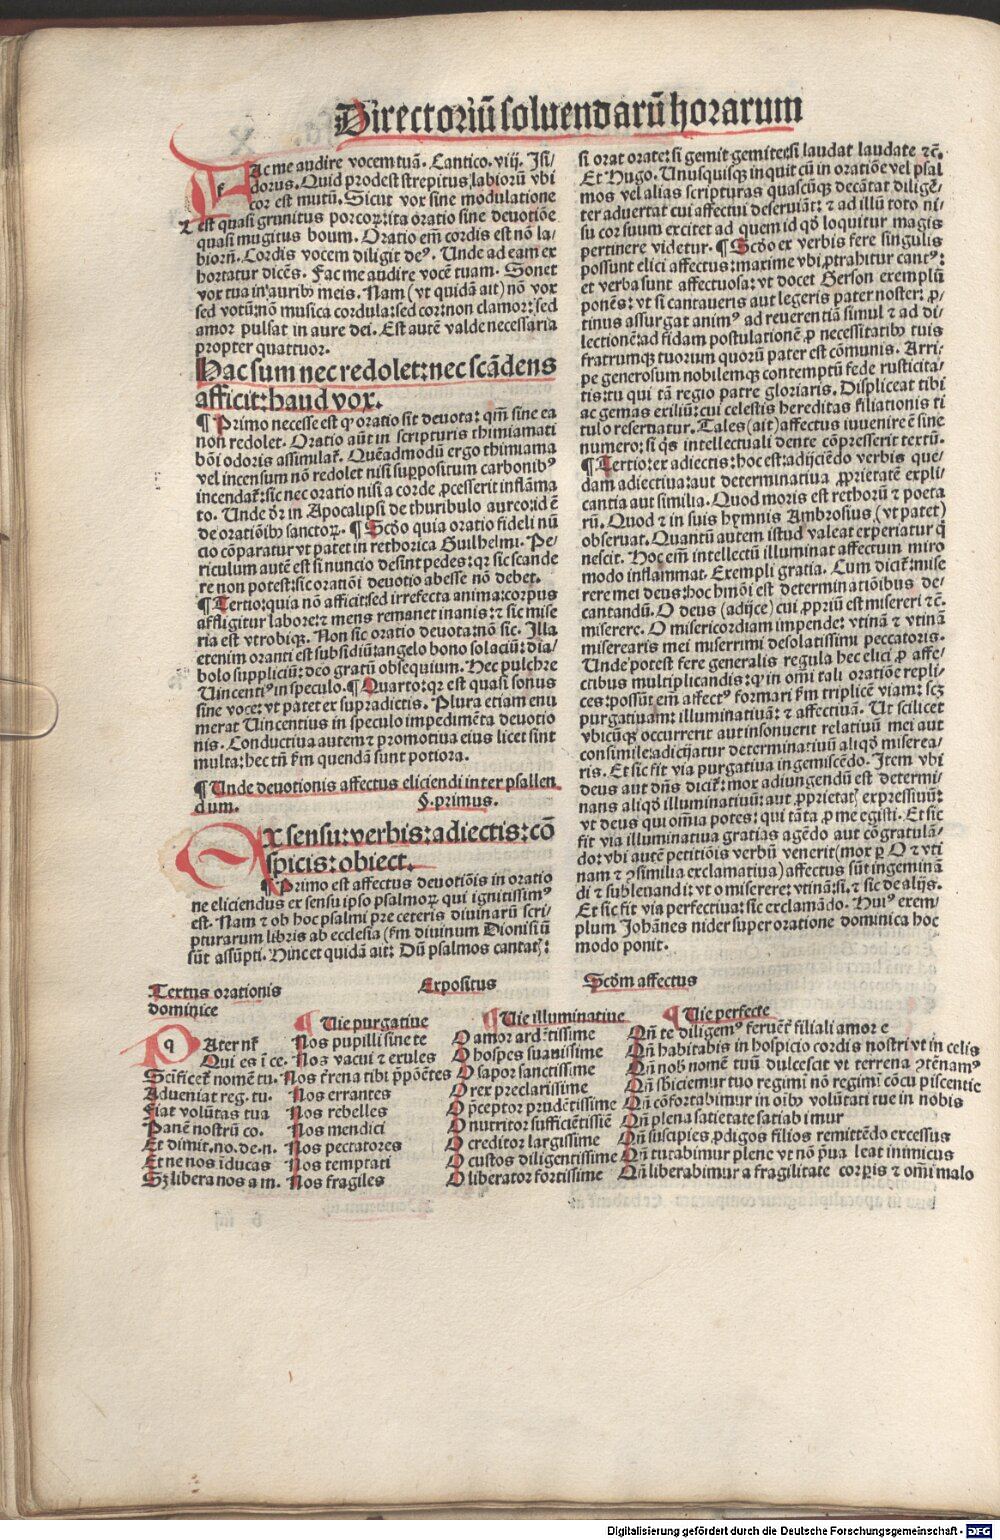 Directoriū soluendarū horarum
Fac me audire vocem tuā. Cantico. viij. Isi/
dorus. Quid prodest strepitus labiorū vbi
cor est mutū. Sicut vox sine modulatione
est quasi grunitus porcoꝝ: ita oratio sine deuotiōe
quasi mugitus boum. Oratio em̄ cordis est nō la/
biorū. Cordis vocem diligit deꝰ. Unde ad eam ex
hortatur dicēs. Fac me audire vocē tuam. Sonet
vox tua in auribꝰ meis. Nam (vt quidā ait) nō vox
sed votū: nō musica cordula: sed cor: non clamor: sed
amor pulsat in aure dei. Est autē valde necessaria
propter quattuor.
Hac sum nec redolet: nec scādens
afficit: haud vox.
¶ Primo necesse est qꝫ oratio sit deuota: qm̄ sine ea
non redolet. Oratio aūt in scripturis thimiamati
bōi odoris assimilat᷑. Quēadmodū ergo thimiama
vel incensum nō redolet nisi suppositum carbonibꝰ
incendat᷑: sic nec oratio nisi a corde ꝓcesserit inflāma
to. Unde dr̄ in Apocalipsi de thuribulo aureo: id ē
de oratiōibꝰ sanctoꝝ. ¶ Scdo quia oratio fideli nū
cio cōparatur vt patet in rethorica Guilhelmi. Pe/
riculum autē est si nuncio desint pedes: qꝛ sic scande
re non potest: sic oratiōi deuotio abesse nō debet.
¶ Tertio: quia nō afficit: sed irrefecta anima: corpus
affligitur labore: ⁊ mens remanet inanis: ⁊ sic mise
ria est vtrobiqꝫ. Non sic oratio deuota: nō sic. Illa
etenim oranti est subsidiū: angelo bono solaciū: dia/
bolo suppliciū: deo gratū obsequium. Hec pulchre
Uincentiꝰ in speculo. ¶ Quarto: qꝛ est quasi sonus
sine voce: vt patet ex supradictis. Plura etiam enu
merat Uincentius in speculo impedimēta deuotio
nis. Conductiua autem ⁊ promotiua eius licet sint
multa: hec tn̄ fm̄ quendā sunt potiora.
¶ Unde deuotionis affectus eliciendi inter psallen
dum. §. primus.
EX sensu: verbis: adiectis: cō
spicis: obiect.
¶ Primo est affectus deuotiōis in oratio
ne eliciendus ex sensu ipso psalmoꝝ qui ignitissimꝰ
est. Nam ⁊ ob hoc psalmi pre ceteris diuinarū scri/
pturarum libris ab ecclesia (fm̄ diuinum Dionisiū
sūt assūpti. Hinc et quidā ait: Dū psalmos cantat᷑:
si orat orate: si gemit gemite: si laudat laudate ⁊c̄.
Et Hugo. Unusquisqꝫ inquit cū in oratiōe vel psal
mos vel alias scripturas quascūqꝫ decātat diligē/
ter aduertat cui affectui deseruiāt: ⁊ ad illū toto ni/
su cor suum excitet ad quem id qd̄ loquitur magis
pertinere videtur. ¶ Scdo ex verbis fere singulis
possunt elici affectus: maxime vbi ꝓtrahitur cantꝰ:
et verba sunt affectuosa: vt docet Gerson exemplū
ponēs: vt si cantaueris aut legeris pater noster: ꝓ/
tinus assurgat animꝰ ad reuerentiā simul ⁊ ad di/
lectionē: ad fidam postulationē ꝓ necessitatibꝰ tuis
fratrumqꝫ tuorum quorū pater est cōmunis. Arri/
pe generosum nobilemqꝫ contemptū fede rusticita/
tis: tu qui tā regio patre gloriaris. Displiceat tibi
ac gemas exiliū: cui celestis hereditas filiationis ti
tulo reseruatur. Tales (ait) affectus iuuenire ē sine
numero: si qs̄ intellectuali dente cōpresserit textū.
¶ Tertio: ex adiectis: hoc est: adijciēdo verbis que/
dam adiectiua: aut determinatiua ꝓprietatē expli/
cantia aut similia. Quod moris est rethorū ⁊ poeta
rū. Quod ⁊ in suis hymnis Ambrosius (vt patet)
obseruat. Quantū autem istud valeat experiatur q̇
nescit. Hoc em̄ intellectū illuminat affectum miro
modo inflammat. Exempli gratia. Cum dicit᷑: mise
rere mei deus: hoc hmōi est determinatiōibus de/
cantandū. O deus (adijce) cui ꝓpriū est misereri ⁊c̄.
miserere. O misericordiam impende: vtinā ⁊ vtinā
miserearis mei miserrimi desolatissimi peccatoris.
Unde potest fere generalis regula hec elici ꝓ affe/
ctibus multiplicandis: qꝫ in omi tali oratiōe repli/
ces: possūt em̄ affectꝰ formari fm̄ triplicē viam: scꝫ
purgatiuam: illuminatiuā: ⁊ affectiuā. Ut scilicet
vbicūqꝫ occurrerit aut insonuerit relatiuū mei aut
consimile: adiciatur determinatiuū aliqd̄ miserea/
ris. Et sic fit via purgatiua ingemiscēdo. Item vbi
deus aut dn̄s dicit᷑: mox adiungendū est determi/
nans aliqd̄ illuminatiuū: aut ꝓprietatꝭ expressiuū:
vt deus qui omia potes: qui tāta ꝓ me egisti. Et sic
fit via illuminatiua gratias agēdo aut cōgratulā/
do: vbi autē petitiōis verbū venerit (mox ꝑ O ⁊ vti
nam ⁊ ꝯsimilia exclamatiua) affectus sūt ingeminā
di ⁊ subleuandi: vt o miserere: vtinā: si. ⁊ sic de alijs.
Et sic fit via perfectiua: sic exclamādo. Huiꝰ exem/
plum Johānes nider super oratione dominica hoc
modo ponit.
Textus orationis Expositus Scdm affectus
dominice
¶ Uie purgatiue ¶ Uie illuminatiue ¶ Uie perfecte
PAter nr̄ Nos pupilli sine te O amor ardētissime Qn̄ te diligemꝰ feruēt᷑ filiali amore
Qui es ī ce. Nos vacui ⁊ exules O hospes suauissime Qn̄ habitabis in hospicio cordis nostri vt in celis
Scīficet᷑ nomē tu. Nos t᷑rena tibi p̄pōētes O sapor sanctissime Qn̄ nob̄ nomē tuū dulcescit vt terrena ꝯtēnamꝰ
Adueniat reg. tu. Nos errantes O rex preclarissime Qn̄ sb̄iciemur tuo regimi nō regimi cōcupiscentie
Fiat volūtas tua Nos rebelles O p̄ceptor prudētissime Qn̄ cōfortabimur in oībꝰ volūtati tue in nobis
Panē nostrū co. Nos mendici O nutritor sufficiētissiē Qn̄ plena satietate satiabimur
Et dimit. no. de. n. Nos peccatores O creditor largissime Qn̄ suscipies ꝓdigos filios remittēdo excessus
Et ne nos īducas Nos temptati O custos diligentissime Qn̄ tutabimur plene vt nō p̄ualeat inimicus
Sꝫ libera nos a m. Nos fragiles O liberator fortissime Qn̄ liberabimur a fragilitate corꝑis ⁊ om̄i malo
Digitalisierung gefördert durch die Deutsche Forschungsgemeinschaft - DFG